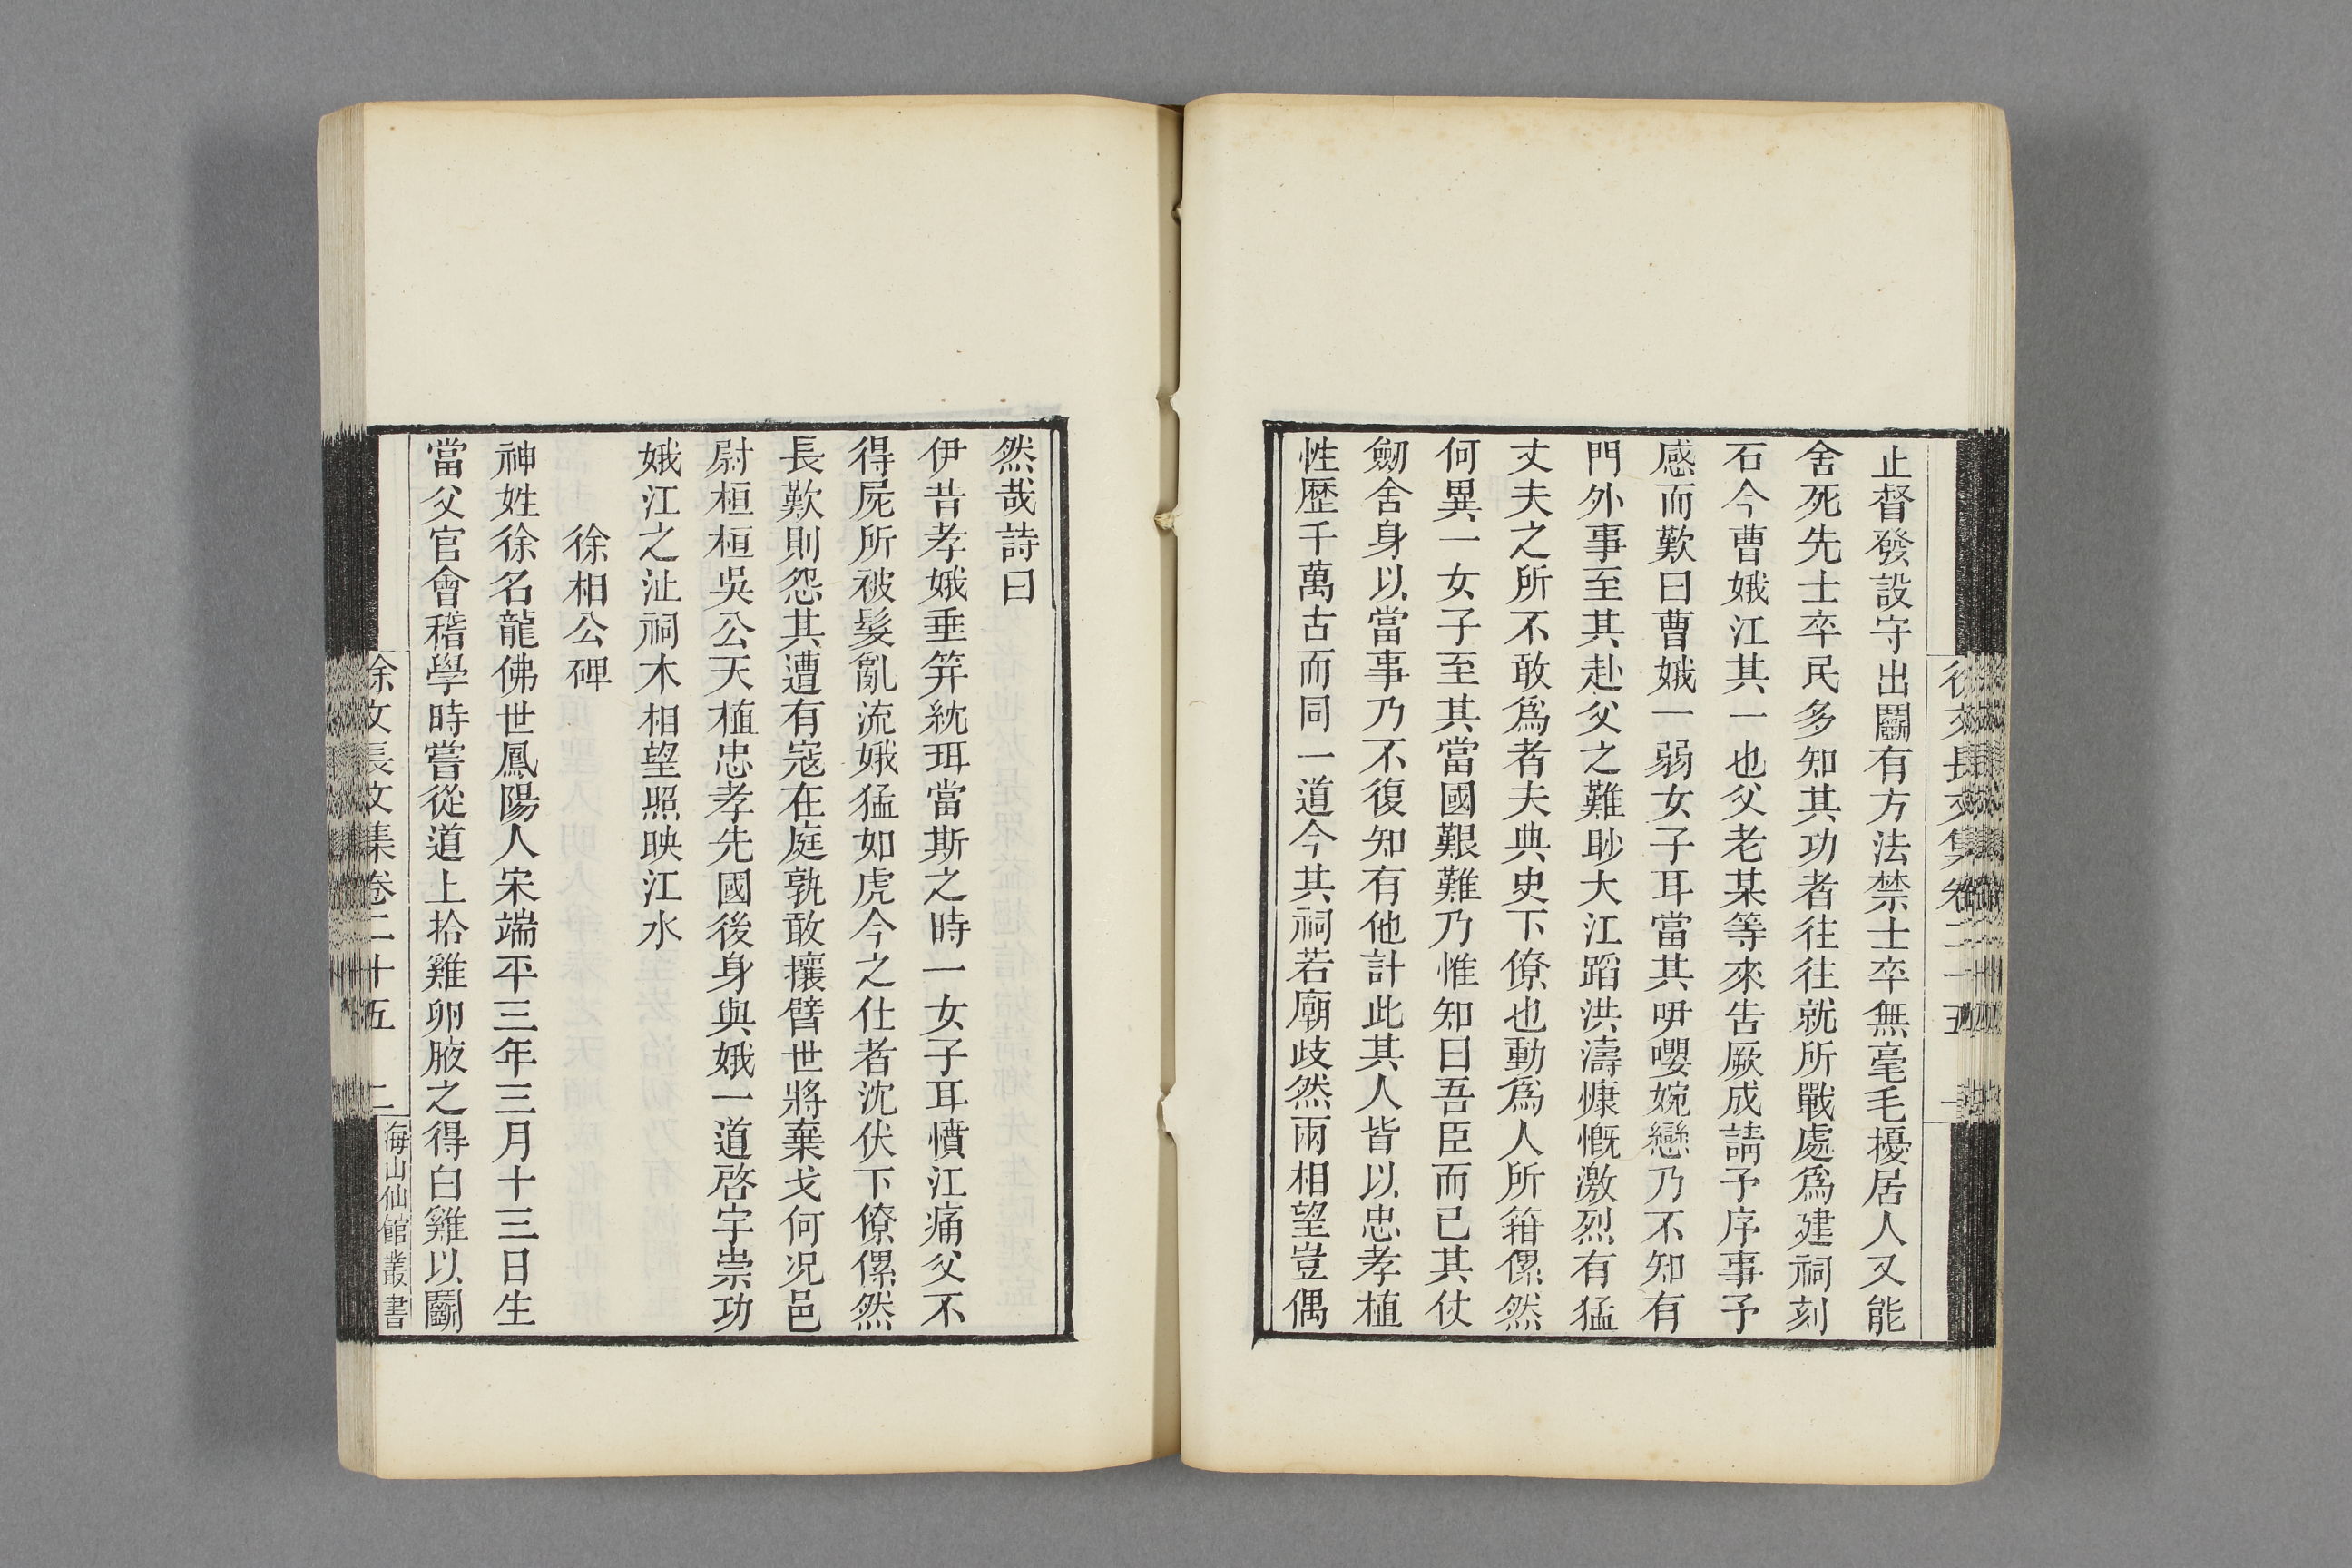 止督發設守出鬭有方法禁士卒無毫毛擾居人又能
舍死先士卒民多知其功者往往就所戰處爲建祠刻
石今曹娥江其一也父老某等來告厥成請予序事予
感而歎曰曹娥一弱女子耳當其吚嚶婉戀乃不知有
門外事至其赴父之難眇大江蹈洪濤慷慨激烈有猛
丈夫之所不敢爲者夫典史下僚也動爲人所箝傫然
何異一女子至其當國艱難乃惟知曰吾臣而已其仗
劒舍身以當事乃不復知有他計此其人皆以忠孝植
性歷千萬古而同一道今其祠若廟歧然兩相望豈偶
然哉詩曰
伊昔孝娥垂笄紞珥當斯之時一女子耳憤江痛父不
得屍所被髮亂流娥猛如虎今之仕者沈伏下僚傫然
長歎則怨其遭有寇在庭孰敢攘臂世將棄戈何況邑
尉桓桓吳公天植忠孝先國後身與娥一道啓宇崇功
娥江之沚祠木相望照映江水
徐相公碑
神姓徐名龍佛世鳳陽人宋端平三年三月十三日生
當父官會稽學時嘗從道上拾雞卵腋之得白雞以鬭
徐文長文集卷二十五 二
海山仙館叢書